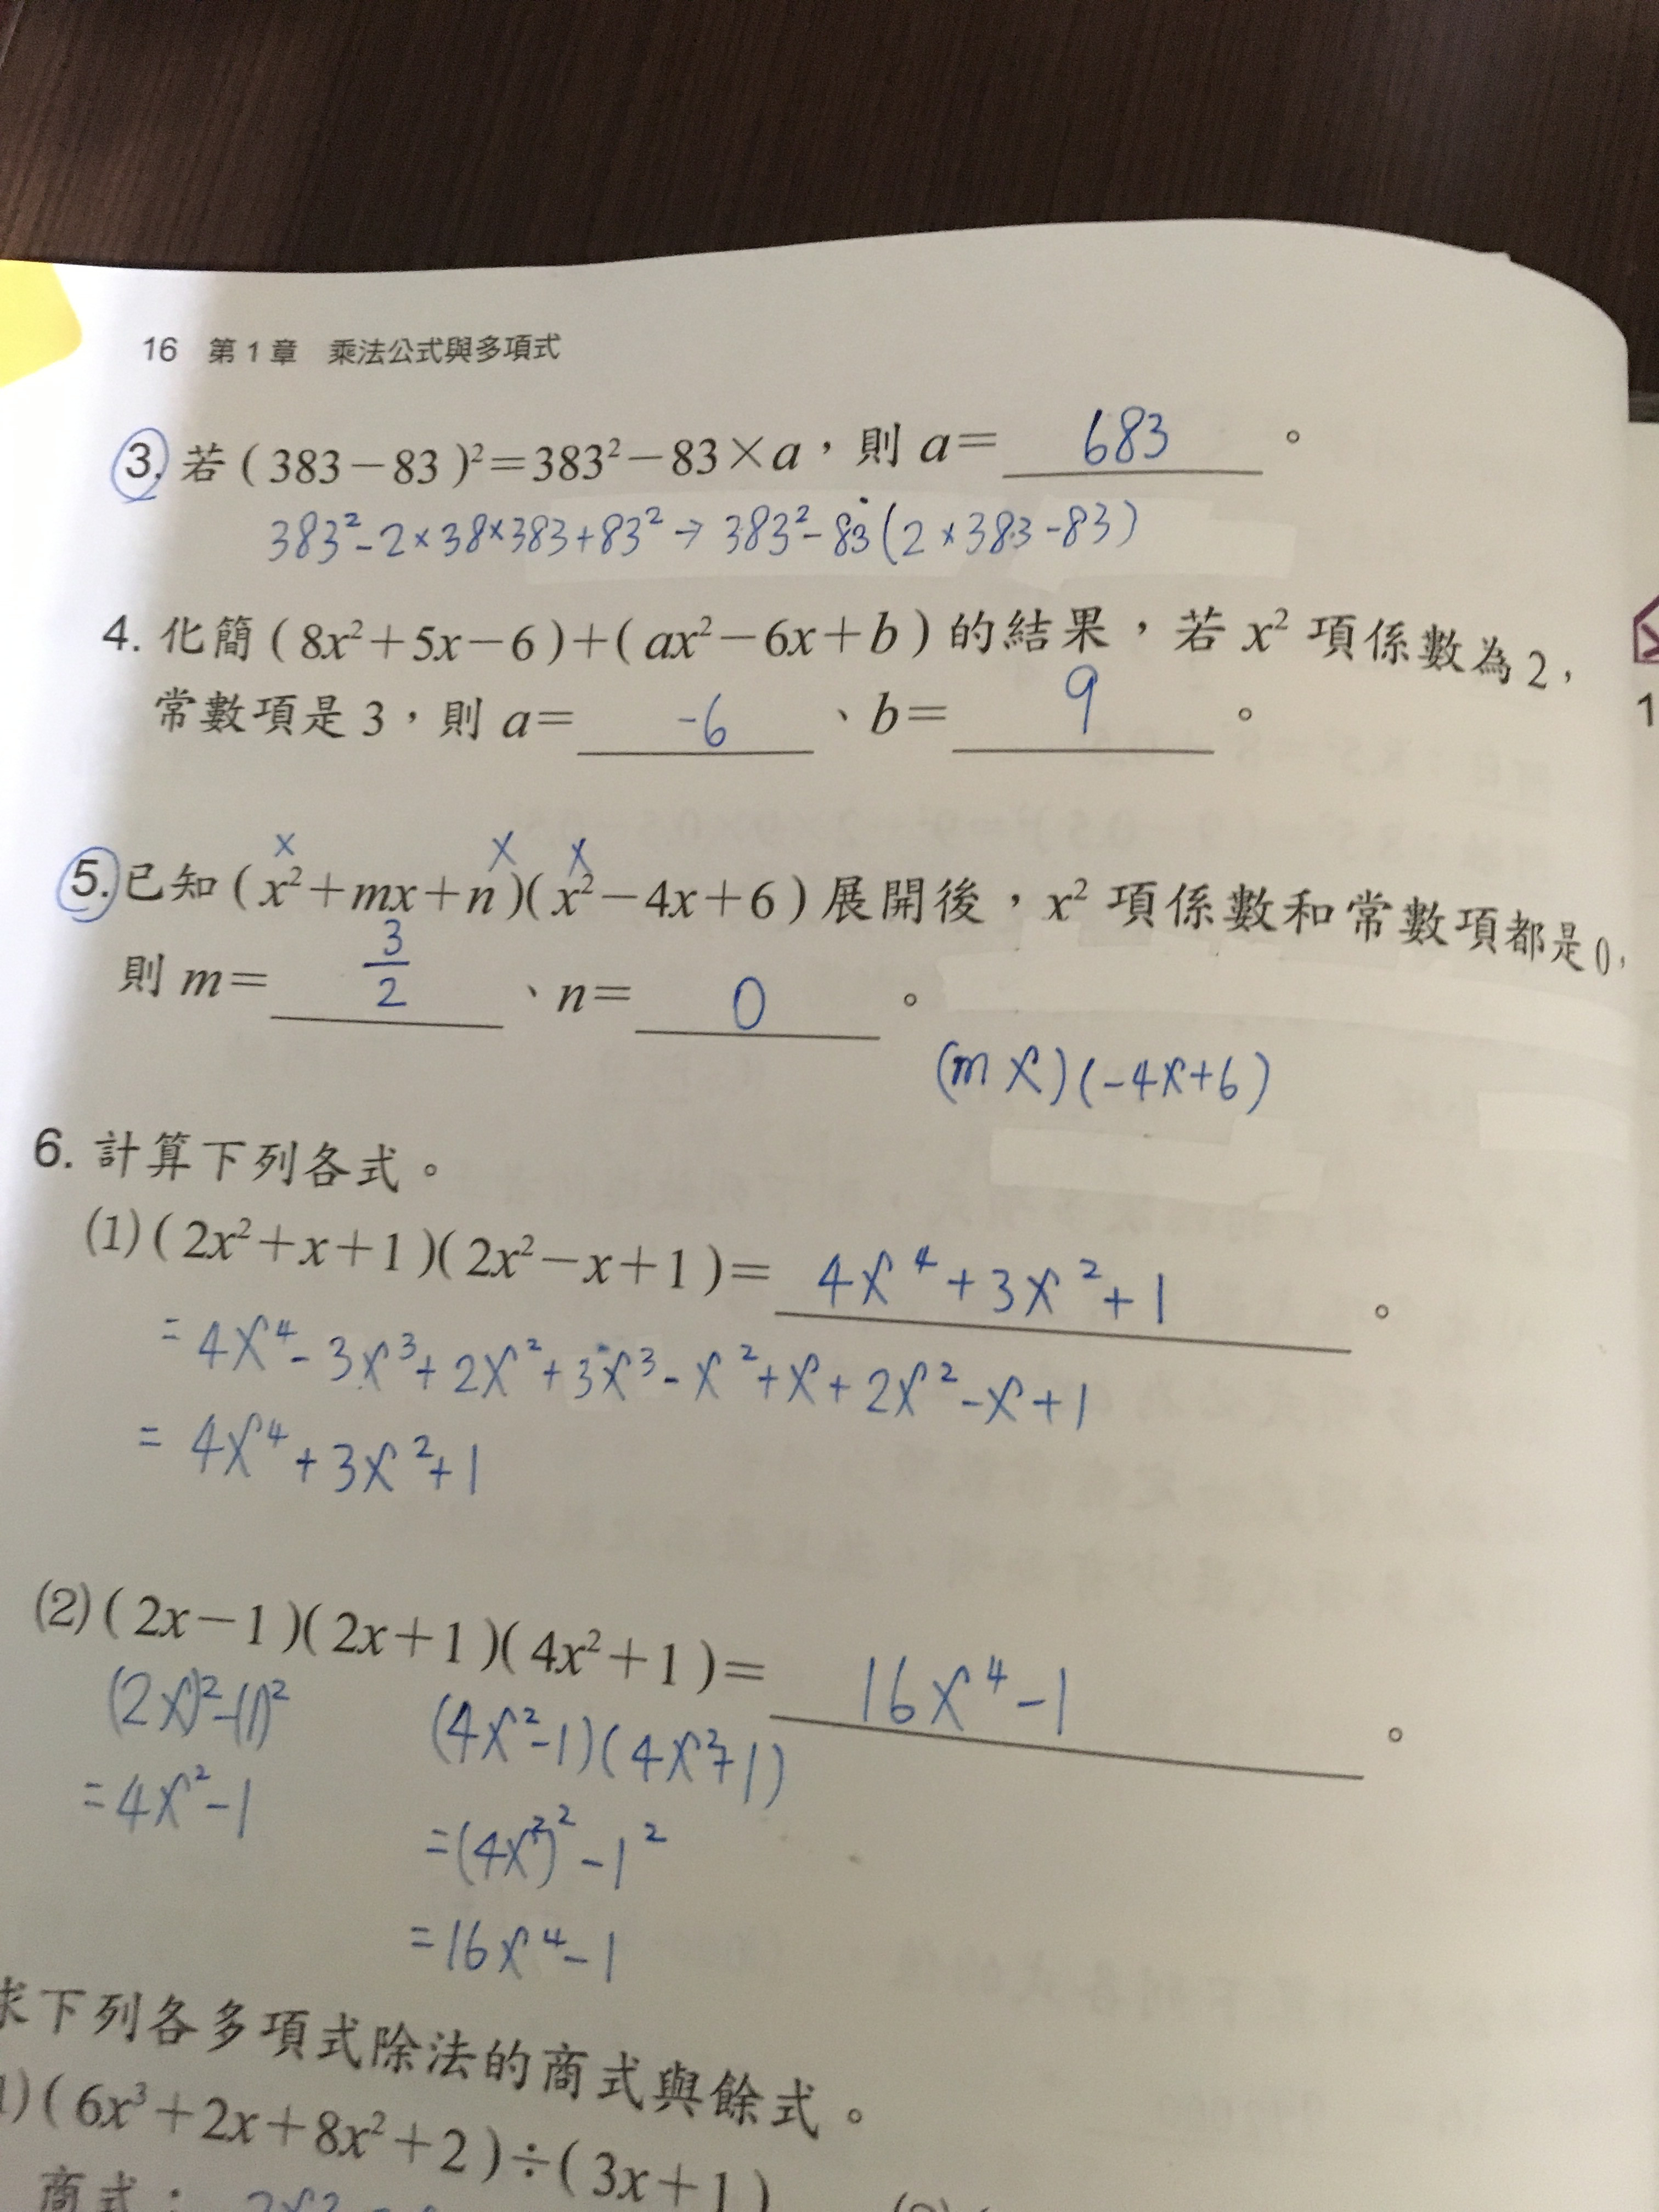 16 第1章 乘法公式與多項式
3. 若(383-83)²=383²-83×a,則 a= 683 。
383²-2×38×383+83² → 383²-83(2×383-83)
4. 化簡(8x²+5x-6)+(ax²-6x+b)的結果,若 x² 項係數為2,
常數項是3,則 a= -6 、b= 9 。
1
x x x
5. 已知(x²+mx+n)(x²-4x+6)展開後,x² 項係數和常數項都是0,
則 m= 3/2 、n= 0 。
(mx)(-4x+6)
6. 計算下列各式。
(1)(2x²+x+1)(2x²-x+1)= 4x⁴+3x²+1 。
=4x⁴-3x³+2x²+3x³-x²+x+2x²-x+1
=4x⁴+3x²+1
(2)(2x-1)(2x+1)(4x²+1)= 16x⁴-1 。
(2x)²-(1)² (4x²-1)(4x²+1)
=4x²-1
=(4x²)²-1²
=16x⁴-1
求下列各多項式除法的商式與餘式。
1)(6x³+2x+8x²+2)÷(3x+1)
商式: